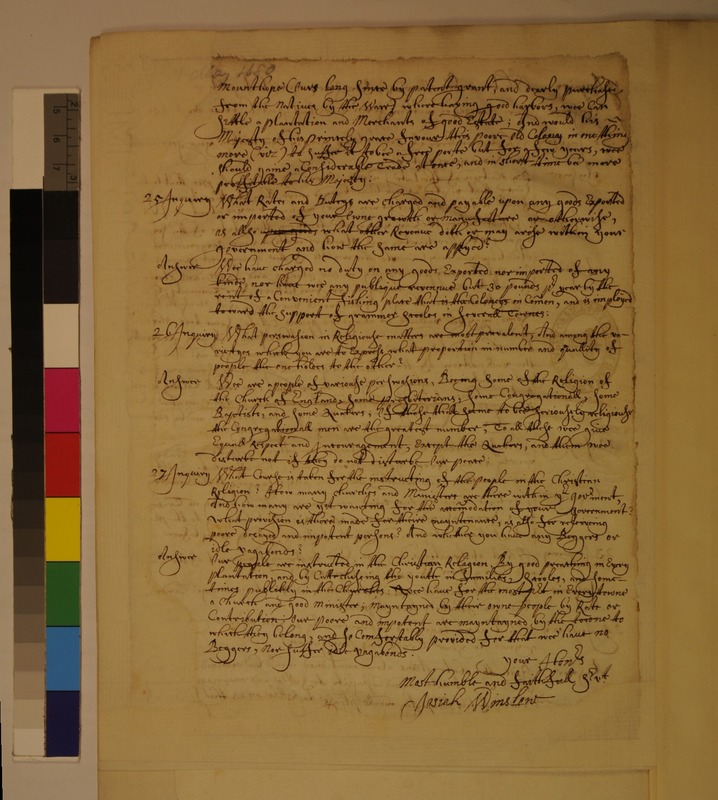 Mounthope Ours long since by patent grant, and dearly purchased
from the Natives by the Warr, where having good harbors, wee can
settle a plantation and Merchants of good Estate; And would his
Majesty of his princely grace favour this poore old Colony in one thing
more (viz) to suffer it to be a free porte but for years, wee
should gaine a Considerable Trade there, and in short time be more
profitable to his Majesty:
25 Inquiry What Rates and Dutyes are charged and payable upon any goods Exported
or imported of your owne growth or Manufacture or otherwise,
as allso what other Revenue doth or may arise within your
Government and how the same are applyed?
Answer Wee have charged no duty on any goods Exported nor imported of any
kinde, nor have wee any publique revenue but 30 pounds pr year by the
rent of a Convenient fishing place that is the Colonyes in Comon, and is employed
toward the Support of grammer Scooles, in severall Townes:
26 Inquiry What perswasion in Religiouse matters are most prevalent, And among the va-
ryetyes which you are to Express what proportion in number and quallity of
people the one holdes to the other?
Answer Wee are a people of variouse perswasions, Beeing Some of the Religion of
the Church of England, Some Presbiterians, Some Congregationall, Some
Baptists, and Some Quakers; Of those that seeme to bee seriously religiouse
the Congregationall men are the greatest number; To all these wee give
Equall Respect and incouragement, Except the Quakers, and them wee
disturbe not if they do not disturbe Our peace.
27 Inquiry What Course is taken for the instructing of the people in the Christian
Religion? How many Churches and Ministers are there within yr Goverment,
And how many are yet wanting for the accomodation of your Government?
What provision is there made for theire maintenance, as allso for releiving
poore decayed and impotent persons? And whither you have any Beggers or
idle Vagabonds?
Answer Our people are instructed in the Christian Religion By good preaching in Every
plantation, and by Cattechising the youth in Families, Scooles, and some-
times publikly in the Churches. Wee have for the most part in Every towne
a Church and good Minister; Mayntayned by theire owne people by Rate or
Contribution; Our poore and impotent are mayntayned by the towne to
which they belong, and so Comfortably provided for that wee have no
Beggers, Nor suffer idle vagabonds:
Your Honrs
Most humble and faithfull Servt
Josiah Winslow